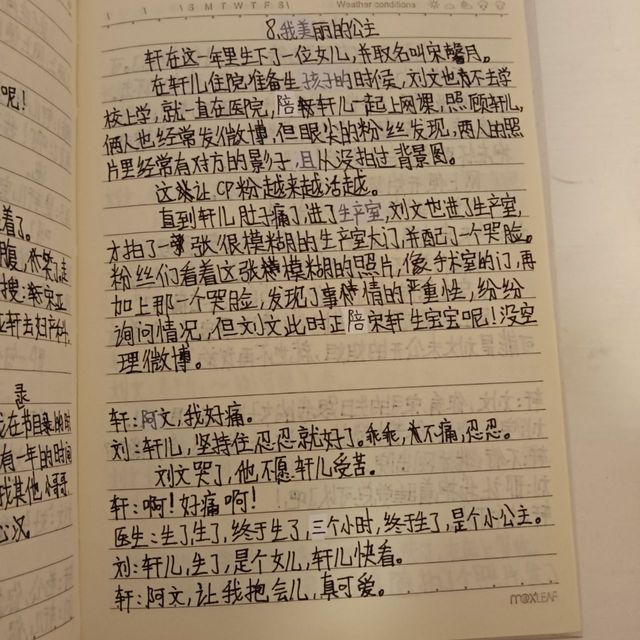 S M T W T F S
Weather conditions
8.我美丽的公主
轩在这一年里生下了一位女儿,并取名叫宋馨月。
在轩儿住院准备生孩子的时侯,刘文也不去学
校上学,就一直在医院,陪轩儿一起上网课,照顾轩儿,
俩人也经常发微博,但眼尖的粉丝发现,两人的照
片里经常有对方的影子,且从没拍过背景图。
这让CP粉越来越活越。
直到轩儿肚子痛了,进了生产室,刘文也进了生产室,
才拍了一张很模糊的生产室大门,并配了一个哭脸。
粉丝们看着这张模糊的照片,像手术室的门,再
加上那一个哭脸,发现了事情的严重性,纷纷
询问情况,但刘文此时正陪宋轩生宝宝呢!没空
理微博。
轩:阿文,我好痛。
刘:轩儿,坚持住,忍忍就好了。乖乖,不痛,忍忍。
刘文哭了,他不愿轩儿受苦。
轩:啊!好痛啊!
医生:生了,生了,终于生了,三个小时,终于生了,是个小公主。
刘:轩儿,生了,是个女儿,轩儿快看。
轩:阿文,让我抱会儿,真可爱。
MAXLEAF
呢!
着了。
腹,
搜:
轩去妇产科
录
在节目录的时
有一年的时间
找其他小哥哥
心汉。